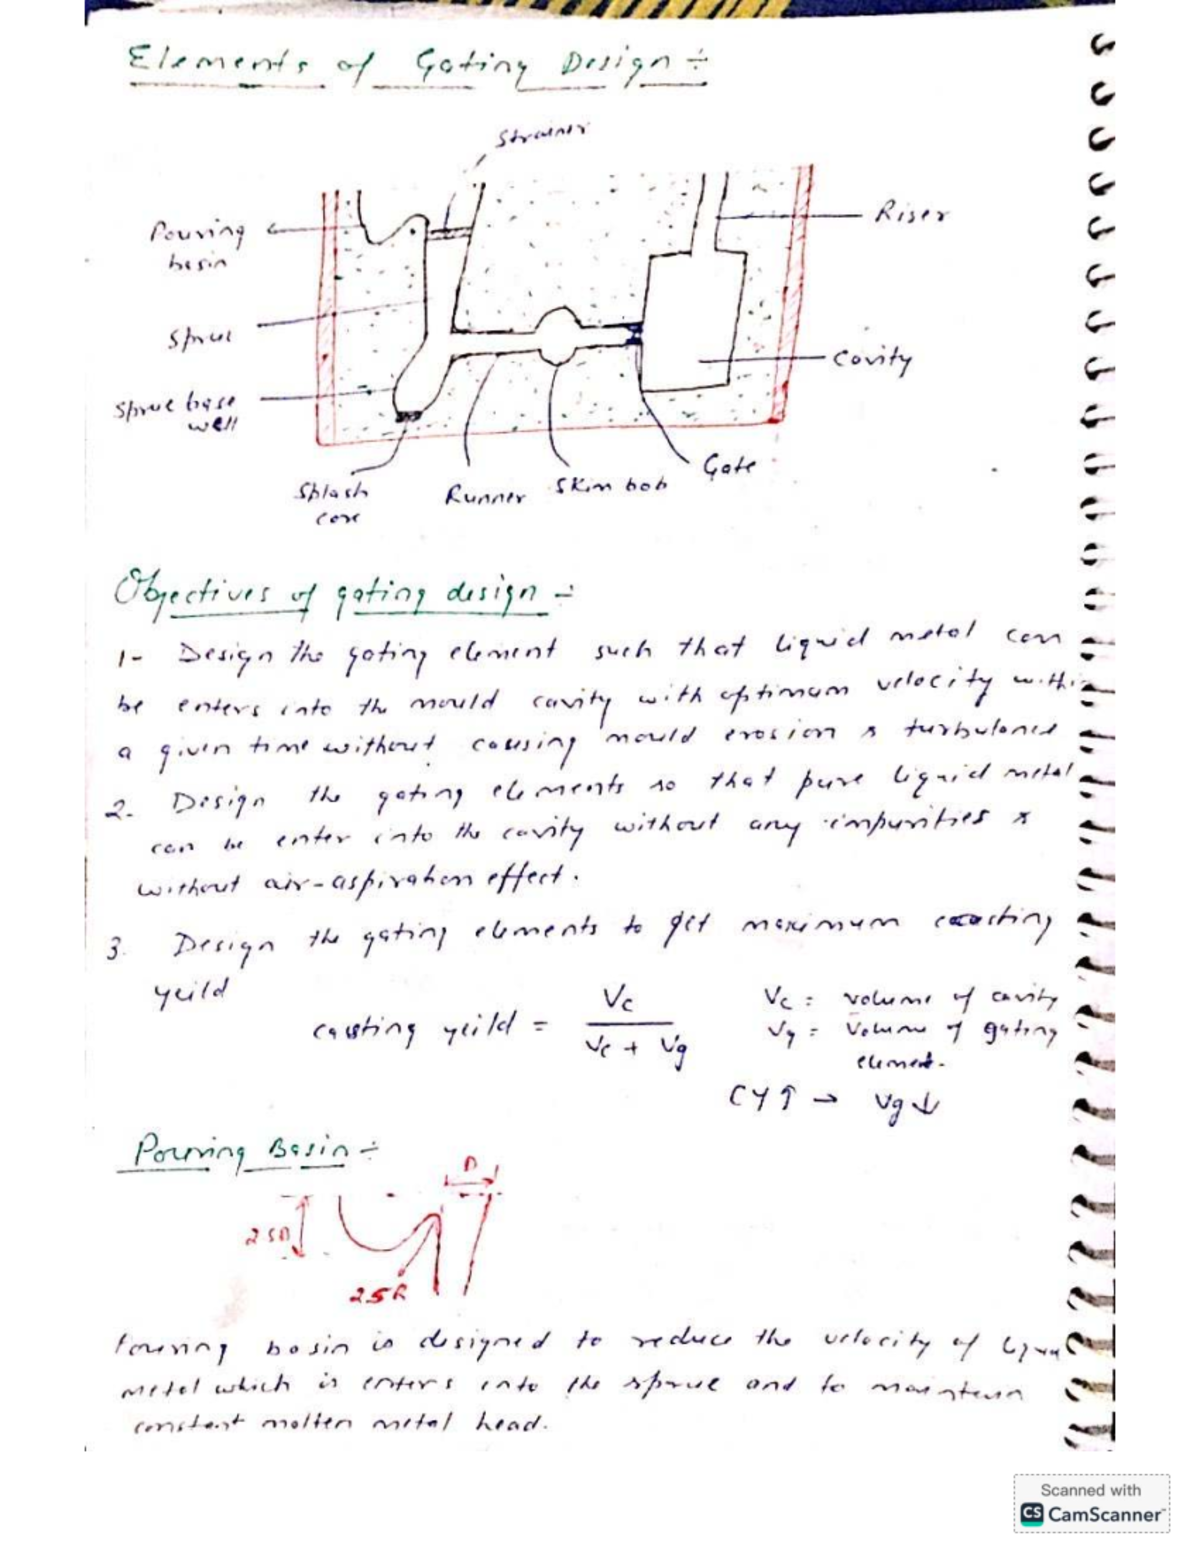 Elements of Gating Design ÷
Strainer
Pouring
basin
Riser
Sprue
Cavity
Sprue base
well
Gate
Splash
core
Runner
Skim bob
Objectives of gating design ÷
1- Design the gating element such that liquid metal can
be enters into the mould cavity with optimum velocity within
a given time without causing mould erosion & turbulance
2. Design the gating elements so that pure liquid metal
can be enter into the cavity without any impurities &
without air-aspiration effect.
3. Design the gating elements to get maximum casting
yeild
casting yeild = Vc / Vc + Vg
Vc = volume of cavity
Vg = Volume of gating
element.
CY↑ → Vg↓
Pouring Basin ÷
D
2.5D
25R
Pouring basin is designed to reduce the velocity of liquid
metal which is enters into the sprue and to maintain
constant molten metal head.
Scanned with
CS CamScanner